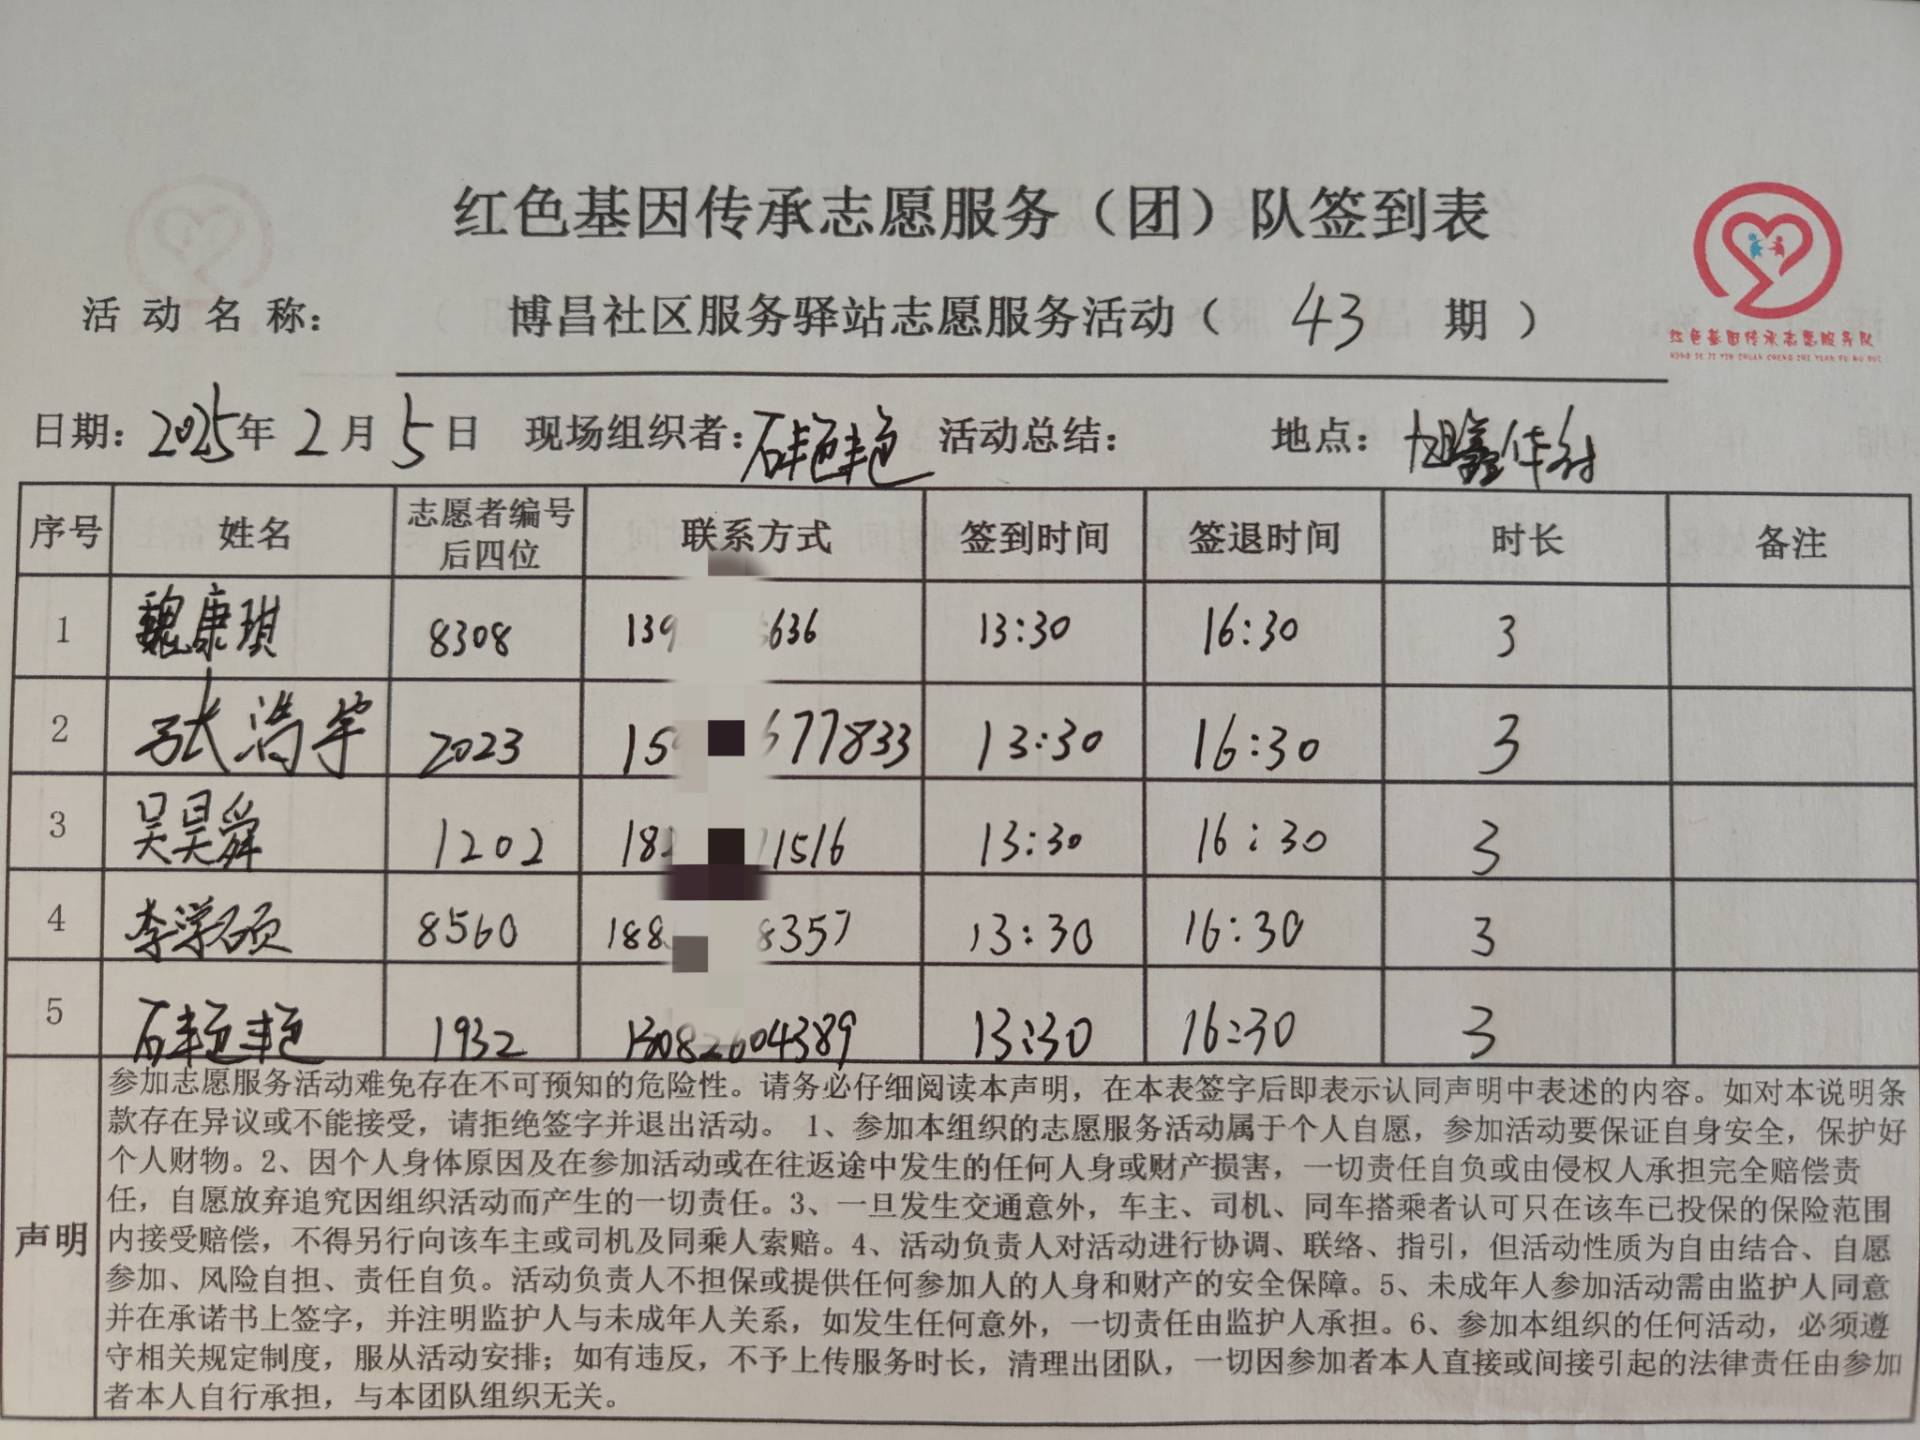 红色基因传承志愿服务（团）队签到表
活动名称： 博昌社区服务驿站志愿服务活动（ 43 期 ）
红色基因传承志愿服务队
HONG SE JI YIN CHUAN CHENG ZHI YUAN FU WU DUI
日期：2025年 2 月 5 日 现场组织者：石艳艳 活动总结： 地点：旭鑫佳苑
序号 姓名 志愿者编号后四位 联系方式 签到时间 签退时间 时长 备注
1 魏康琪 8308 139 636 13:30 16:30 3
2 张浩宇 2023 15 677833 13:30 16:30 3
3 吴昊舜 1202 182 11516 13:30 16:30 3
4 李学硕 8560 188 8357 13:30 16:30 3
5 石艳艳 1932 13082604389 13:30 16:30 3
声明
参加志愿服务活动难免存在不可预知的危险性。请务必仔细阅读本声明，在本表签字后即表示认同声明中表述的内容。如对本说明条
款存在异议或不能接受，请拒绝签字并退出活动。 1、参加本组织的志愿服务活动属于个人自愿，参加活动要保证自身安全，保护好
个人财物。2、因个人身体原因及在参加活动或在往返途中发生的任何人身或财产损害，一切责任自负或由侵权人承担完全赔偿责
任，自愿放弃追究因组织活动而产生的一切责任。3、一旦发生交通意外，车主、司机、同车搭乘者认可只在该车已投保的保险范围
内接受赔偿，不得另行向该车主或司机及同乘人索赔。4、活动负责人对活动进行协调、联络、指引，但活动性质为自由结合、自愿
参加、风险自担、责任自负。活动负责人不担保或提供任何参加人的人身和财产的安全保障。5、未成年人参加活动需由监护人同意
并在承诺书上签字，并注明监护人与未成年人关系，如发生任何意外，一切责任由监护人承担。6、参加本组织的任何活动，必须遵
守相关规定制度，服从活动安排；如有违反，不予上传服务时长，清理出团队，一切因参加者本人直接或间接引起的法律责任由参加
者本人自行承担，与本团队组织无关。